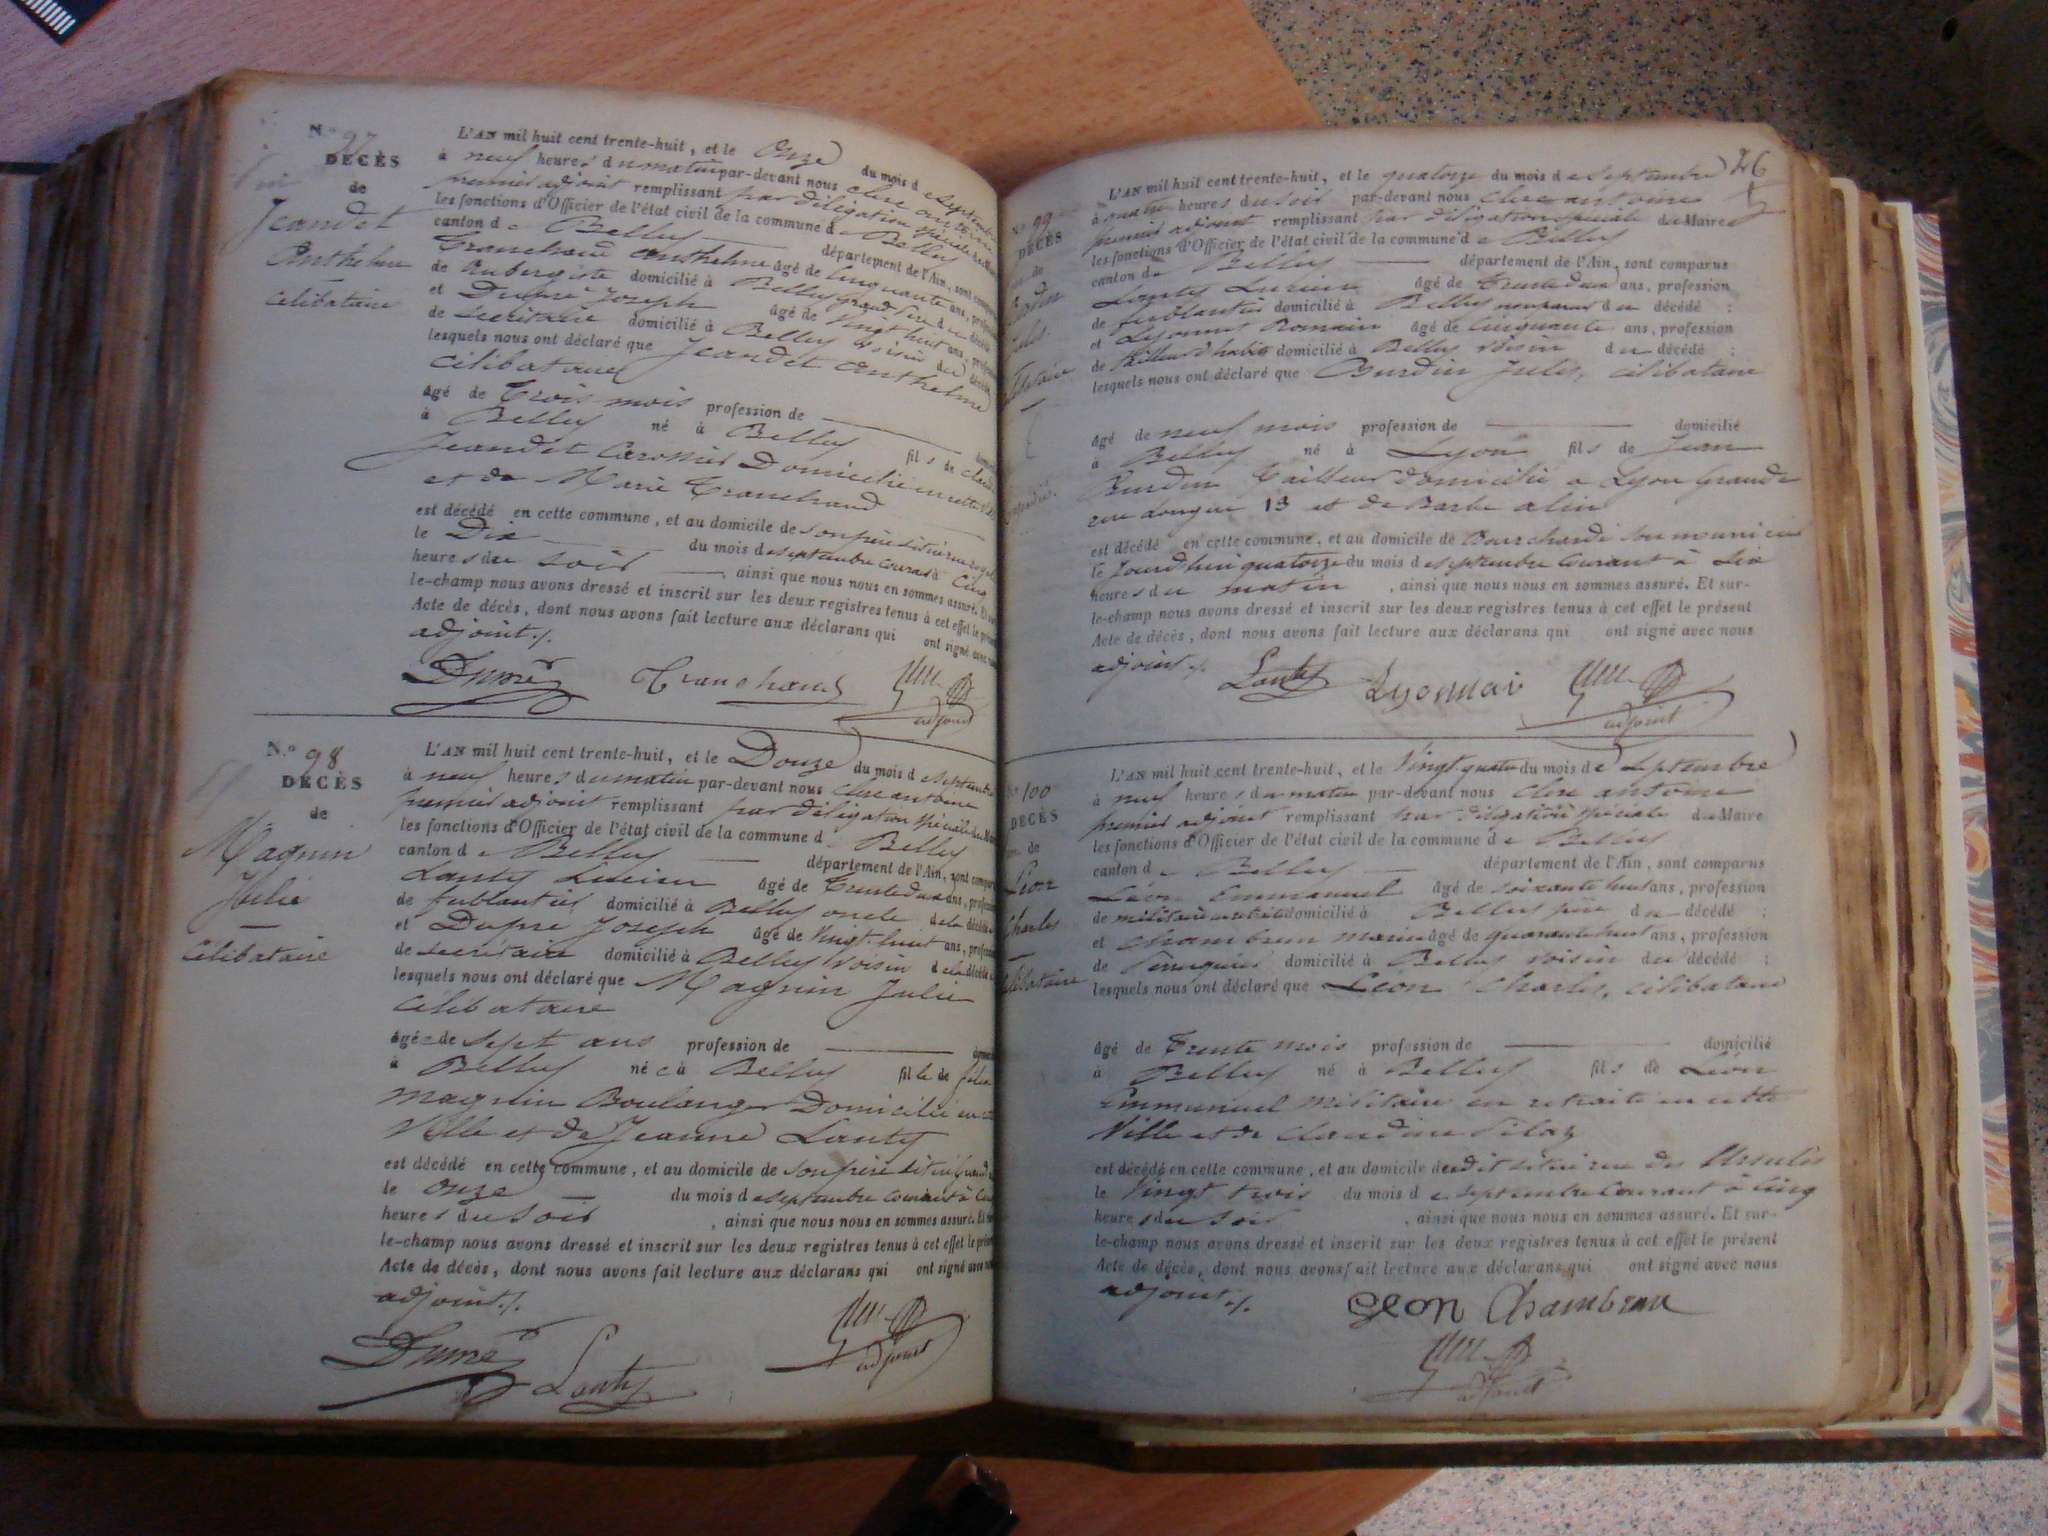 N.º 97
DÉCÈS
de
Jeandet
Anthelme
célibataire
L'AN mil huit cent trente-huit, et le Onze du mois de septembre
à neuf heures du matin par-devant nous Clerc antoine
premier adjoint remplissant par déligation spéciale du Maire
les fonctions d'Officier de l'état civil de la commune de Belley
canton de Belley département de l'Ain, sont comparus
Tranchand anthelme âgé de cinquante ans, profession
de aubergiste domicilié à Belley grand père du décédé
et Dupré Joseph âgé de vingt huit ans, profession
de secrétaire domicilié à Belley voisin du décédé
lesquels nous ont déclaré que Jeandet anthelme
célibataire
âgé de Trois mois profession de
à Belley né à Belley fils de Claude
Jeandet Domicilié en cette ville
et de Marie Tranchand
est décédé en cette commune, et au domicile de son père situé rue
le Dix du mois de septembre courant à Cinq
heures du soir, ainsi que nous nous en sommes assuré. Et sur-
le-champ nous avons dressé et inscrit sur les deux registres tenus à cet effet le présent
Acte de décès, dont nous avons fait lecture aux déclarans qui ont signé avec nous
adjoint ./.
Dupré Tranchand
adjoint
N.º 98
DÉCÈS
de
Magnin
Julie
célibataire
L'AN mil huit cent trente-huit, et le Douze du mois de septembre
à neuf heures du matin par-devant nous Clerc antoine
premier adjoint remplissant par déligation spéciale du Maire
les fonctions d'Officier de l'état civil de la commune de Belley
canton de Belley département de l'Ain, sont comparus
Lanty Lucien âgé de Trente deux ans, profession
de ferblantier domicilié à Belley oncle de la décédée
et Dupré Joseph âgé de vingt huit ans, profession
de secrétaire domicilié à Belley voisin de la décédée
lesquels nous ont déclaré que Magnin Julie
célibataire
âgée de sept ans profession de
à Belley née à Belley fille de félix
magnin Boulanger Domicilié en cette
Ville et de Jeanne Lanty
est décédé en cette commune, et au domicile de son père situé
le onze du mois de septembre courant à
heures du soir, ainsi que nous nous en sommes assuré. Et sur-
le-champ nous avons dressé et inscrit sur les deux registres tenus à cet effet le présent
Acte de décès, dont nous avons fait lecture aux déclarans qui ont signé avec nous
adjoint ./.
Dupré Lanty
adjoint
26
N.º 99
DÉCÈS
de
Burdin
Jules
célibataire
L'AN mil huit cent trente-huit, et le quatorze du mois de septembre
à quatre heures du soir par-devant nous Clerc antoine
premier adjoint remplissant par déligation spéciale du Maire
les fonctions d'Officier de l'état civil de la commune de Belley
canton de Belley département de l'Ain, sont comparus
Lanty Lucien âgé de Trente deux ans, profession
de ferblantier domicilié à Belley non parent du décédé :
et Lyonnet Romain âgé de cinquante ans, profession
de Tailleur d'habits domicilié à Belley voisin du décédé :
lesquels nous ont déclaré que Burdin Jules, célibataire
âgé de neuf mois profession de domicilié
à Belley né à Lyon fils de Jean
Burdin Tailleur domicilié a Lyon grande
rue longue 13 et de Barbe alin
est décédé en cette commune, et au domicile de
le Jourd'hui quatorze du mois de septembre courant à Six
heures du matin, ainsi que nous nous en sommes assuré. Et sur-
le-champ nous avons dressé et inscrit sur les deux registres tenus à cet effet le présent
Acte de décès, dont nous avons fait lecture aux déclarans qui ont signé avec nous
adjoint ./.
Lanty
adjoint
N.º 100
DÉCÈS
de
Léon
Charles
célibataire
L'AN mil huit cent trente-huit, et le vingt quatre du mois de septembre
à neuf heures du matin par-devant nous Clerc antoine
premier adjoint remplissant par déligation spéciale du Maire
les fonctions d'Officier de l'état civil de la commune de Belley
canton de Belley département de l'Ain, sont comparus
Léon Emmanuel âgé de soixante huit ans, profession
de militaire en retraite domicilié à Belley père du décédé :
et Chambrun marin âgé de quarante huit ans, profession
de Perruquier domicilié à Belley voisin du décédé :
lesquels nous ont déclaré que Léon Charles, célibataire
âgé de Trente mois profession de domicilié
à Belley né à Belley fils de Léon
Emmanuel Militaire en retraite en cette
Ville et de Claudine Pilaz
est décédé en cette commune, et au domicile du dit situé rue des Ursules
le Vingt trois du mois de septembre Courant à Cinq
heures du soir, ainsi que nous nous en sommes assuré. Et sur-
le-champ nous avons dressé et inscrit sur les deux registres tenus à cet effet le présent
Acte de décès, dont nous avons fait lecture aux déclarans qui ont signé avec nous
adjoint ./.
Leon
adjoint